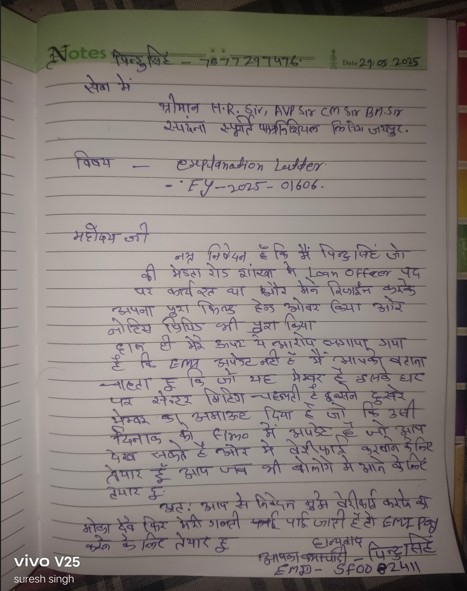 Notes पिन्टु सिंह - 7877297476. Date 29.05.2025
सेवा में
श्रीमान H.R. Sir, AVP Sir CM Sir BM Sir
स्पंदना स्फूर्ति फाइनेंशियल लिमि० जयपुर.
विषय - explanation Ladder
- EY-2025-01606.
महोदय जी
नम्र निवेदन है कि मैं पिन्टु सिंह जो
की मेडता रोड शाखा में Loan Officer पद
पर कार्यरत था और मेने रिजाईन करके
अपना पुरा फिल्ड हेन्ड ओवर किया और
नोटिस पिरिड भी पुरा किया
हाल ही मेरे ऊपर ये आरोप लगाया गया
है कि EMI अपडेट नहीं है मैं आपको बताना
चाहता हु कि जो यह मेम्बर है इसके घर
पर सेन्टर मिटिंग चलती है इसने दुसरे
मेम्बर का अमाउंट दिया है जो कि उसी
दिनांक को EMI में अपडेट है जो आप
देख सकते है और मे वेरीफाई करवाने के लिए
तैयार हूँ आप जब भी बोलोगे में आने के लिए
तैयार हु
अतः आप से निवेदन मुझे वेरीफाई करने का
मोका देवे फिर मेरी गलती पाई जाती है तो EMI Pay
करने के लिए तैयार हु
धन्यवाद
आपका कर्मचारी - पिन्टु सिंह
EMP - SF0082411
vivo V25
suresh singh